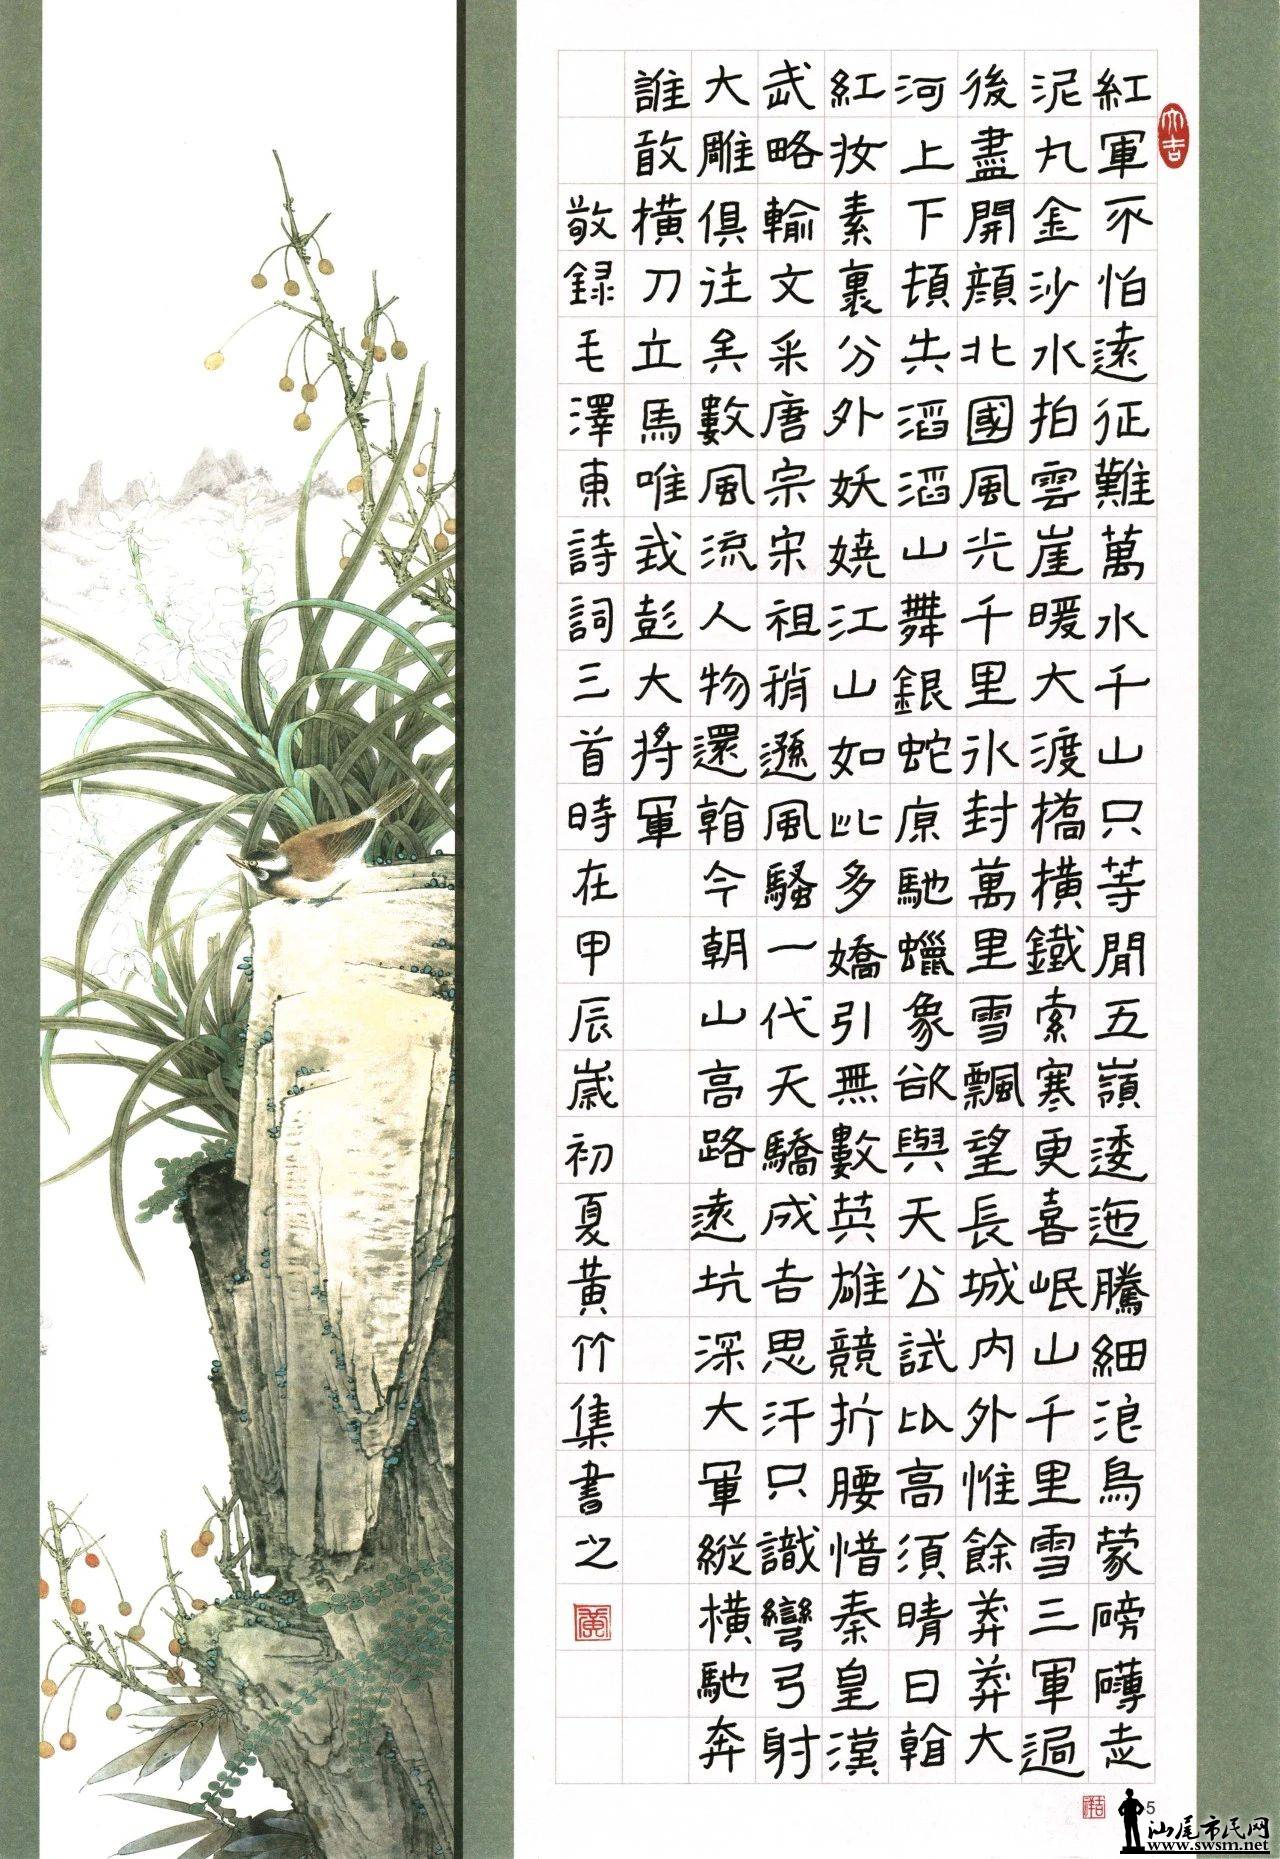 大吉
紅軍不怕遠征難萬水千山只等閒五嶺逶迤騰細浪烏蒙磅礴走
泥丸金沙水拍雲崖暖大渡橋橫鐵索寒更喜岷山千里雪三軍過
後盡開顏北國風光千里冰封萬里雪飄望長城內外惟餘莽莽大
河上下頓失滔滔山舞銀蛇原馳蠟象欲與天公試比高須晴日看
紅妝素裹分外妖嬈江山如此多嬌引無數英雄競折腰惜秦皇漢
武略輸文采唐宗宋祖稍遜風騷一代天驕成吉思汗只識彎弓射
大雕俱往矣數風流人物還看今朝山高路遠坑深大軍縱橫馳奔
誰敢橫刀立馬唯我彭大將軍
敬録毛澤東詩詞三首時在甲辰歲初夏黃竹集書之
黃
5
汕尾市民网
www.swsm.net